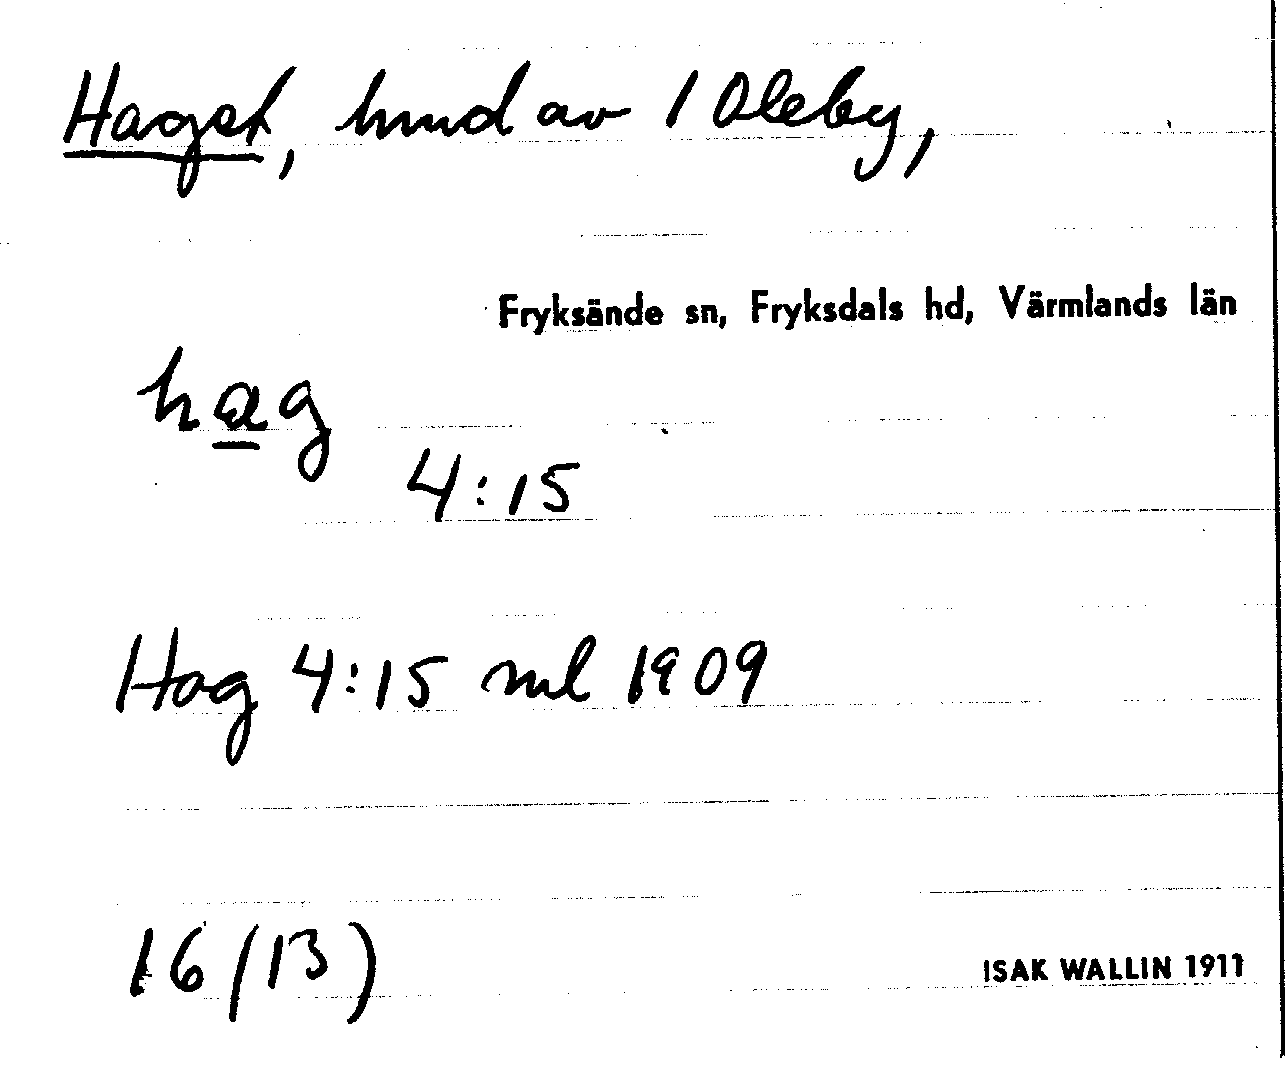 Haget, hmd av 1 Oleby,
Fryksände sn, Fryksdals hd, Värmlands län
hag
4:15
Hag 4:15 ml 1909
16 (13)
ISAK WALLIN 1911